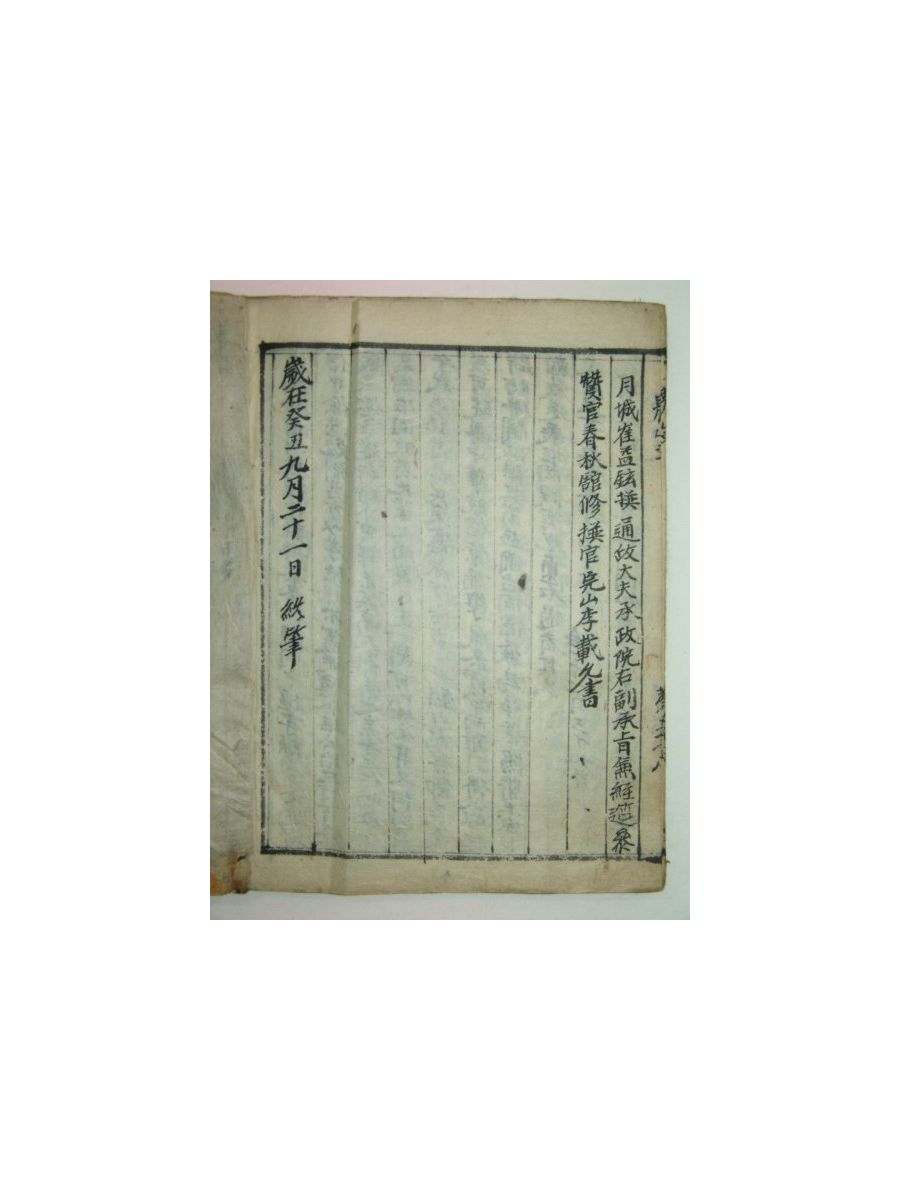 月城崔益鉉撰 通政大夫承政院右副承旨兼經筵參
贊官春秋館修撰官完山李載允書
歲在癸丑九月二十一日 終筆